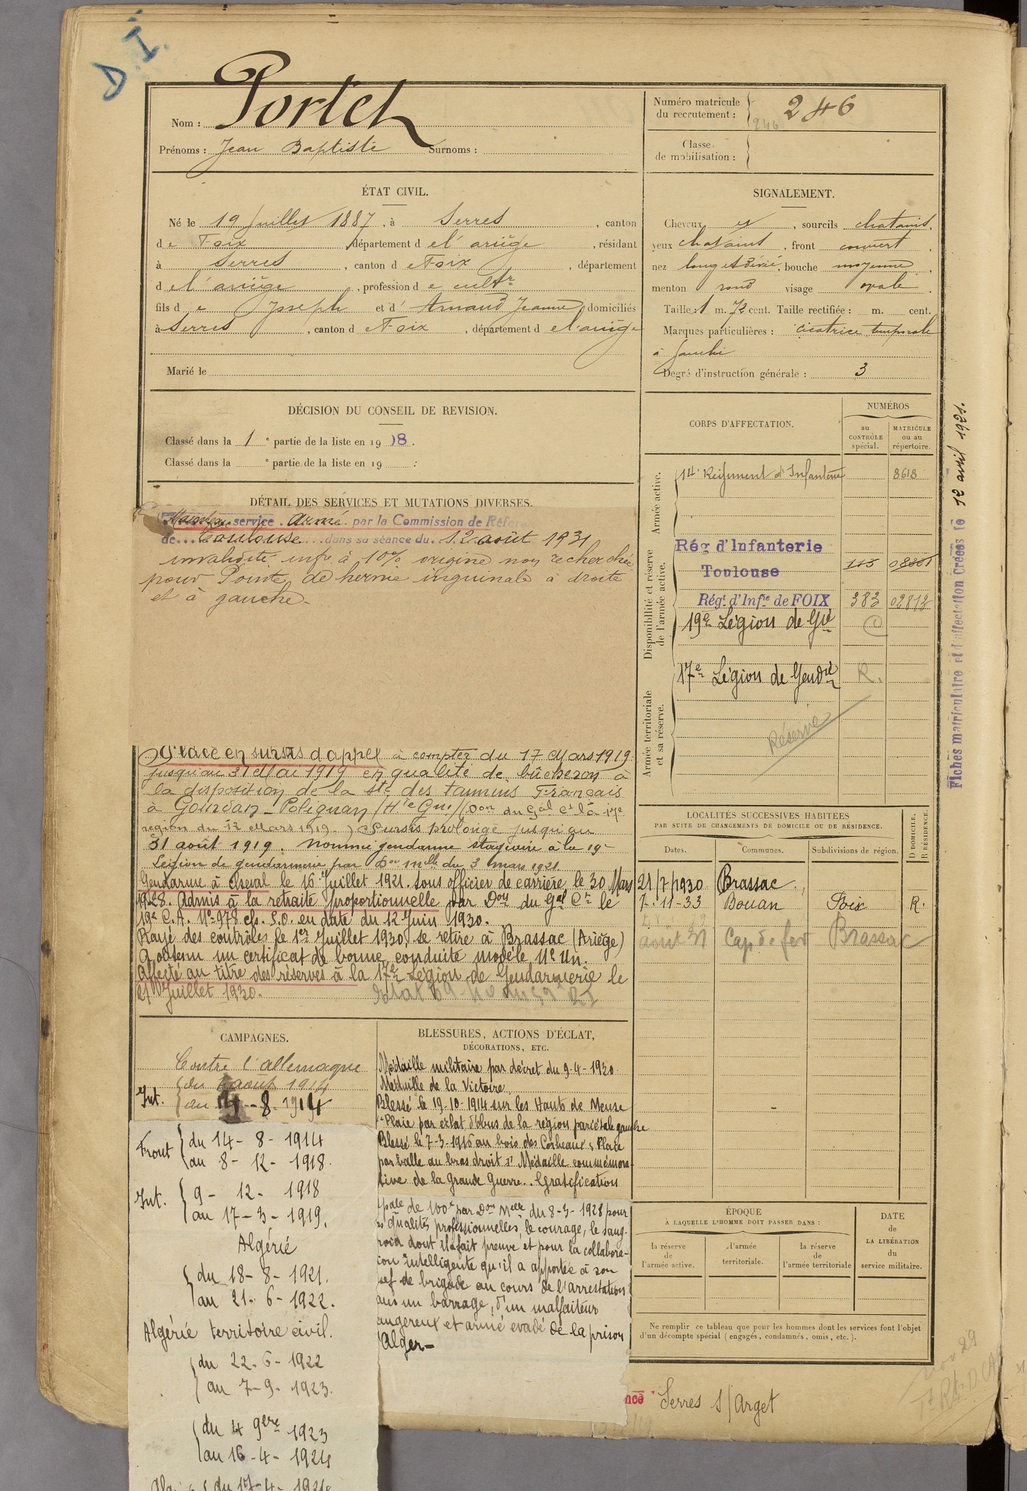 D I.
Nom : Portet
Prénoms : Jean Baptiste Surnoms :
Numéro matricule
du recrutement : 246
246
Classe
de mobilisation :
ÉTAT CIVIL.
Né le 19 Juillet 1887, à Serres, canton
de Foix, département de l'ariège, résidant
à Serres, canton de Foix, département
de l'ariège, profession de cultr
fils de Joseph et d' Arnaud Jeanne, domiciliés
à Serres, canton de Foix, département de l'ariège
Marié le
SIGNALEMENT.
Cheveux et, sourcils chatains
yeux chatains, front couvert
nez long et dévié, bouche moyenne
menton rond visage ovale
Taille 1 m. 72 cent. Taille rectifiée : m. cent.
Marques particulières : cicatrice temporale
à gauche
Degré d'instruction générale : 3
DÉCISION DU CONSEIL DE REVISION.
Classé dans la 1e partie de la liste en 1908.
Classé dans la e partie de la liste en 19 .
CORPS D'AFFECTATION.
NUMÉROS
au
CONTRÔLE
spécial.
MATRICULE
ou au
répertoire.
Armée active.
14e Régiment d'Infanterie 8618
Disponibilité et réserve
de l'armée active.
Rég d'Infanterie
Toulouse
Régt d'Infie de FOIX 383 02812
19e Légion de Gie C
17e Légion de Gendie R.
Armée territoriale
et sa réserve.
Réserve
Fiches matriculaire et d'affectation créées le 12 avril 1921.
DÉTAIL DES SERVICES ET MUTATIONS DIVERSES.
Maintenu service armé par la Commission de Réforme
de Toulouse dans sa séance du 12 août 1931
invalidité infre à 10% origine non recherchée
pour Pointe de hernie inguinale à droite
et à gauche.
Placé en sursis d'appel à compter du 17 Mars 1919
jusqu'au 31 Mai 1919 en qualité de bûcheron à
la disposition de la Sté des Tannins Français
à Gourdan-Polignan (Hte Gne) (Don du Gal Ct la 17e
région du 12 Mars 1919.) Sursis prolongé jusqu'au
31 août 1919. Nommé gendarme stagiaire à la 19e
Légion de gendarmerie par Don mlle du 3 mars 1921.
Gendarme à cheval le 16 juillet 1921. sous officier de carrière le 30 Mars
1928. Admis à la retraite proportionnelle par Don du Gal Ct le
19e C.A. No 978 cls. S.O. en date du 12 Juin 1930.
Rayé des contrôles le 1er Juillet 1930, se retire à Brassac (Ariège)
A obtenu un certificat de bonne conduite modèle No Un.
Affecté au titre des réserves à la 17e Légion de Gendarmerie le
21 Juillet 1930.
LOCALITÉS SUCCESSIVES HABITÉES
PAR SUITE DE CHANGEMENTS DE DOMICILE OU DE RÉSIDENCE.
Dates. Communes. Subdivisions de région. D DOMICILE. R RÉSIDENCE.
21/7/1930 Brassac
7-11-33 Bouan Foix R.
août 31 Cap de fer Brassac
CAMPAGNES.
Contre l'allemagne
Int. du août 1914
au 13-8-1914
Front du 14-8-1914
au 8-12-1918.
Int. 9-12-1918
au 17-3-1919.
Algérie
du 18-8-1921.
au 21-6-1922.
Algérie territoire civil.
du 22-6-1922
au 7-9-1923.
du 4 9bre 1923
au 16-4-1924
du 17-4-1924
BLESSURES, ACTIONS D'ÉCLAT,
DÉCORATIONS, ETC.
Médaille militaire par décret du 9-4-1920
Médaille de la Victoire
Blessé le 19-10-1914 sur les Hauts de Meuse
Plaie par éclat d'obus de la région pariétale gauche
Blessé le 7-3-1916 au bois des Corbeaux. Plaie
par balle au bras droit. Médaille commémora-
tive de la Grande Guerre.. Gratification
pale de 100f par Don Melle du 8-3-1928 pour
qualités professionnelles, le courage, le sang-
froid dont il a fait preuve et pour la collabora-
tion intelligente qu'il a apportée à son
chef de brigade au cours de l'arrestation
dans un barrage, d'un malfaiteur
dangereux et armé évadé de la prison
d'Alger.
ÉPOQUE
À LAQUELLE L'HOMME DOIT PASSER DANS :
la réserve
de
l'armée active.
l'armée
territoriale.
la réserve
de
l'armée territoriale
DATE
de
LA LIBÉRATION
du
service militaire.
Ne remplir ce tableau que pour les hommes dont les services font l'objet
d'un décompte spécial (engagés, condamnés, omis, etc.).
Serres s/Arget